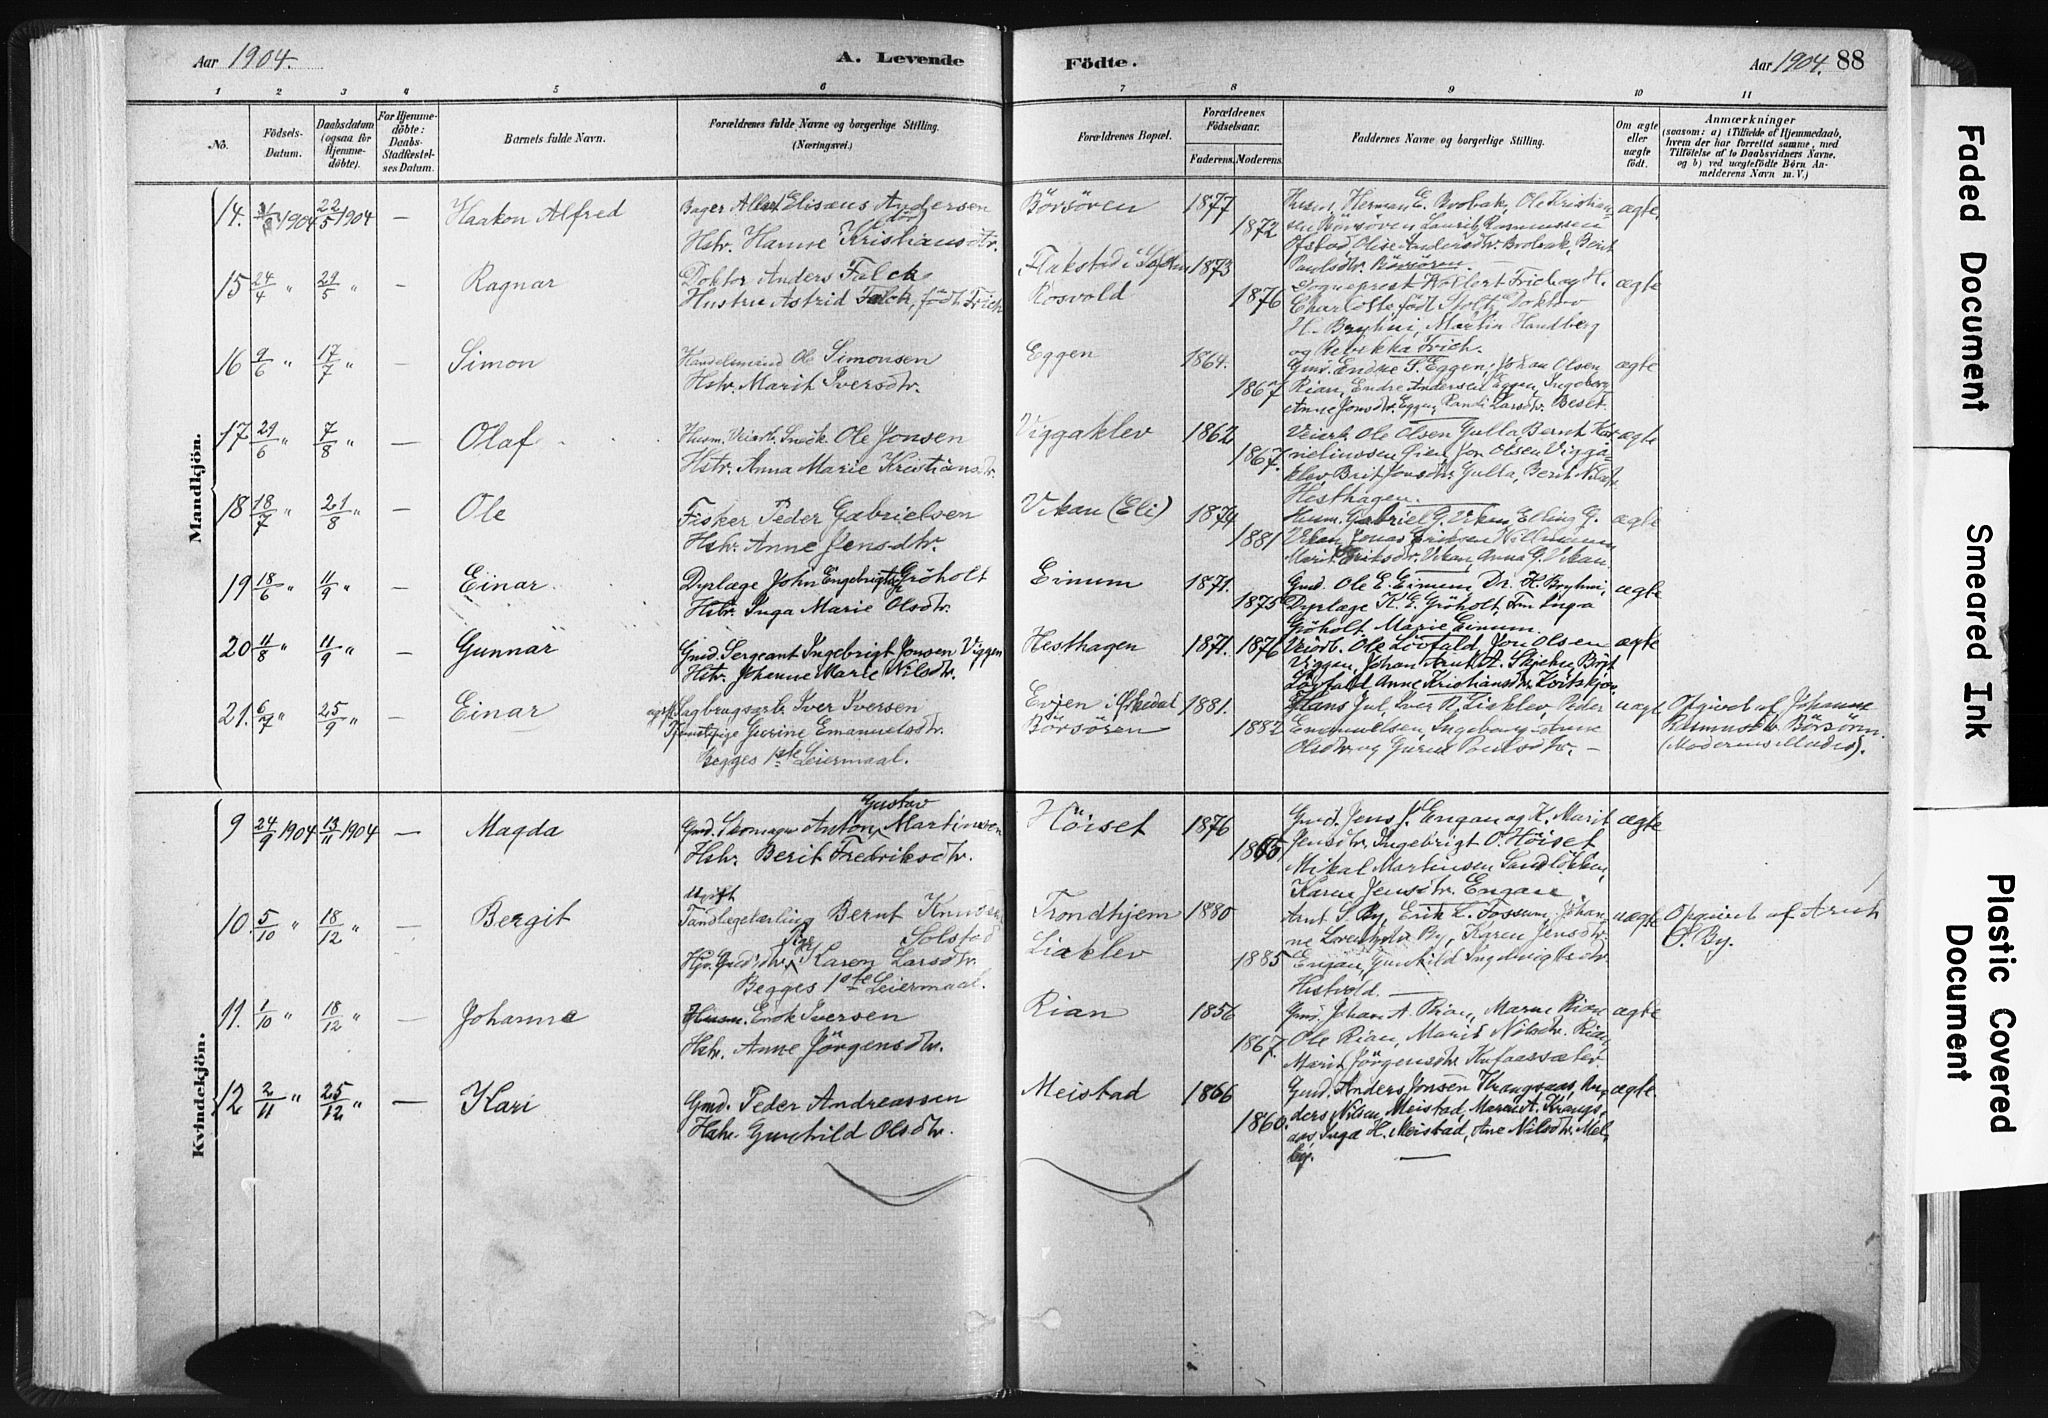 Aar 1904.
A. Levende
Födte.
Aar 1904. 88
1 2 3 4 5 6 7 8 9 10 11
No.
Födsels-Datum.
Daabsdatum (ogsaa for Hjemmedöbte).
For Hjemmedöbte: Daabs-Stadfæstelses Datum.
Barnets fulde Navn.
Forældrenes fulde Navne og borgerlige Stilling. (Næringsvei.)
Forældrenes Bopæl.
Forældrenes Födselsaar.
Faderens. Moderens.
Faddernes Navne og borgerlige Stilling.
Om ægte eller uægte födt.
Anmærkninger
(saasom: a) i Tilfælde af Hjemmedaab, hvem der har forrettet samme, med Tilföielse af to Daabsvidners Navne, og b) ved uægtefödte Börn Anmelderens Navn m. V.)
Mandkjön.
14. 1904 22/5 1904 — Haakon Alfred
Bager Albert Elisæus Andersen
Hstr. Hanne Kristiansdtr.
Börsören 1877 1872
Herman E. Brobak, Ole Kristian-
sen Börsören Laurits Rasmussen
Ofstad Olise Andersdtr. Brobak, Berit
Paulsdtr. Börsören.
ægte,
15 24/4 " 29/5 " — Ragnar
Doktor Anders Falck
Hustru Astrid Falck, födt Frich
Flakstad i
Rosvold 1873 1876
Sogneprest Frich og H.
Charlotte födt Stoltz, Doktor
H. Bryhni, Martin Handberg
og Rebekka Frich.
ægte
16 9/6 " 17/7 " — Simon
Handelsmand Ole Simonsen
Hstr. Marit Iversdtr.
Eggen 1864. 1867
Gmd. Endre S. Eggen, Johan Olsen
Rian, Endre Andersen Eggen, Ingeborg
Anne Jonsdtr. Eggen, Randi Larsdtr. Beset.
ægte
17 29/6 " 7/8 " — Olaf
Husm. Ole Jonsen
Hstr. Anna Marie Kristiansdtr.
Viggaklev 1862 1867.
Ole Olsen Gulla, Bernt Kor-
neliussen Öien, Jon Olsen Vigga-
klev, Brit Jonsdtr. Gulla, Berit
Hesthagen.
ægte
18 18/7 " 21/8 " — Ole
Fisker Peder Gabrielsen
Hstr. Anne Jensdtr.
Vikan (Eli) 1874 1881
Husm. Gabriel G. Vikan, Elling G.
Vikan, Jonas Eriksen
Marit Eriksdtr. Vikan, Anna G. Vikan.
ægte
19 18/6 " 11/9 " — Einar
Dyrlæge John Engebrigtsen Gröholt
Hstr. Inga Marie Olsdtr.
Einum 1871. 1875
Gmd. Ole E. Einum, Dr. H. Bryhni,
Dyrlæge K. E. Gröholt, Frn Inga
Gröholt, Marie Einum.
ægte
20 11/8 " 11/9 " — Gunnar
Gmd. Sergeant Ingebrigt Jonsen Viggen
Hstr. Johanne Marie Nilsdtr.
Hesthagen 1871. 1876
Ole Lövfald, Jon Olsen
Viggen, Johan Arnt A. Skjehn, Brit
Lövfald, Anne Kristiansdtr.
ægte
21. 6/7 " 25/9 " — Einar
Sagbrugsarb. Iver Iversen
Tjenestepige Gurine Emanuelsdtr.
Begges 1ste Leiermaal.
Evjen i Orkedal
Börsören 1881. 1882
Hans Jul, Iver R. Liaklev, Peder
Emanuelsen, Ingeborg Anne
Olsdtr. og Guren Paulsdtr. —
uægte
Opgivet af Johanne
Rasmusdtr. Börsören.
(Moderens Moder).
Kvindekjön.
9 24/9 1904 13/11 1904 — Magda
Gmd. Skomager Anton Gustav Martinsen
Hstr. Berit Fredriksdtr.
Höiset 1876 1865
Gmd. Jens J. Engan og K. Marit
Jensdtr. Ingebrigt O. Höiset
Mikal Martinsen Sandlökken,
Karen Jensdtr. Engan.
ægte
10. 5/10 " 18/12 " — Bergit
Ugift
Tandlægelærling Bernt Knudsen
Solstad
Pige Karen Larsdtr.
Begges 1ste Leiermaal.
Trondhjem
Liaklev 1880 1885
Arnt S. By, Erik L. Fossum, Johan-
ne By, Karen Jensdtr.
Engan, Gunhild Ingebrigtsdtr.
Hestvold. —
uægte
Opgivet af Arnt
S. By.
11. 1/10 " 18/12 " — Johanna
Husm. Enok Iversen
Hstr. Anne Jörgensdtr.
Rian 1856 1867.
Gmd. Johan A. Rian, Maren Rian
Ole Rian, Marit Nilsdtr. Rian,
Marit Jörgensdtr.
ægte
12 2/11 " 25/12 " — Kari
Gmd. Peder Andreassen
Hstr. Gunhild Olsdtr.
Meistad 1866 1860.
Gmd. Anders Jonsen Krangsaas, An-
ders Nilsen Meistad, Maren A. Krangs-
aas, Inga H. Meistad, Ane Nilsdtr. Mel-
by. —
ægte.
Faded Document
Smeared Ink
Plastic Covered Document